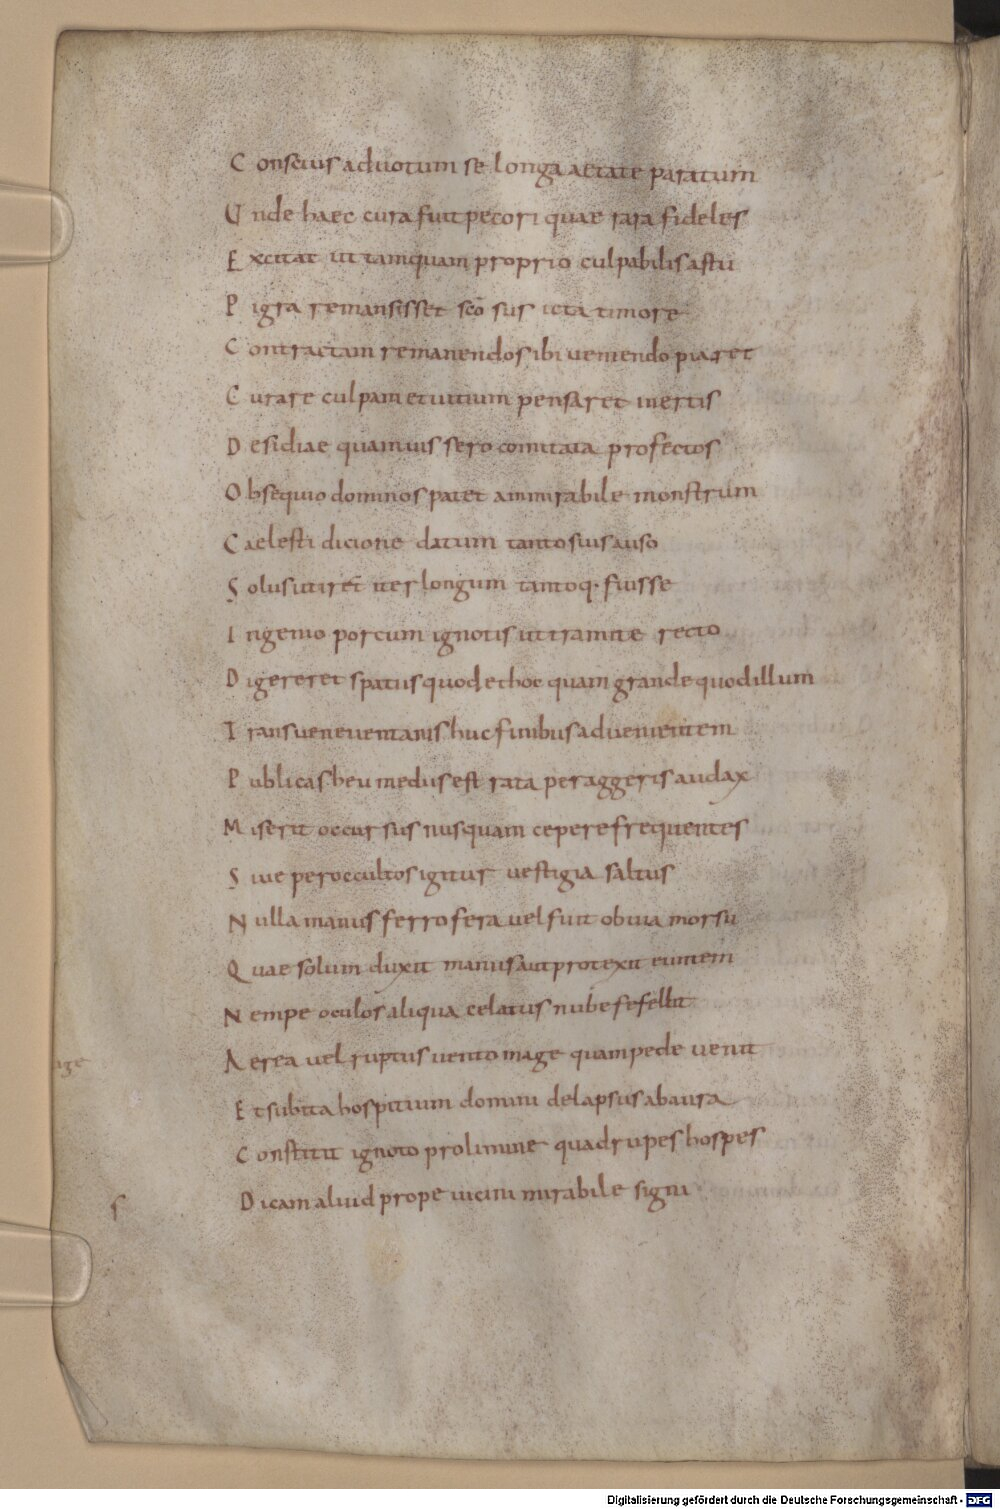 Conscius ad uotum se longa aetate paratum
Unde haec cura fuit pecori quae rara fideles
Excitat ut tamquam proprio culpabilis astu
Pigra remansisset sco sus icta timore
Contractam remanendo sibi ueniendo piaret
Curare culpam et uitium pensaret inertis
Desidiae quamuis sero comitata profectos
Obsequio dominos patet ammirabile monstrum
Caelesti dicione datum tanto suis auso
Solus ut iret iter longum tantoq· fuisse
Ingenio porcum ignotis ut tramite recto
Digereret spatiis quod et hoc quam grande quod illum
Transueneuentanis huc finibus aduenientem
Publicas heu medus est rata per aggeris audax
Miserit occursus nusquam cepere frequentes
Siue per occultos igitur uestigia saltus
Nulla manus ferro fera uel fuit obuia morsu
Quae solum duxit manus aut protexit euntem
Nempe oculos aliqua celatus nube fefellit
Aerea uel ruptus uento mage quam pede uenit
Et subita hospitium domini delapsus ab aura
Constitit ignoto pro limine quadrupes hospes
Dicam aliud prope uicini mirabile signi
Digitalisierung gefördert durch die Deutsche Forschungsgemeinschaft - DFG